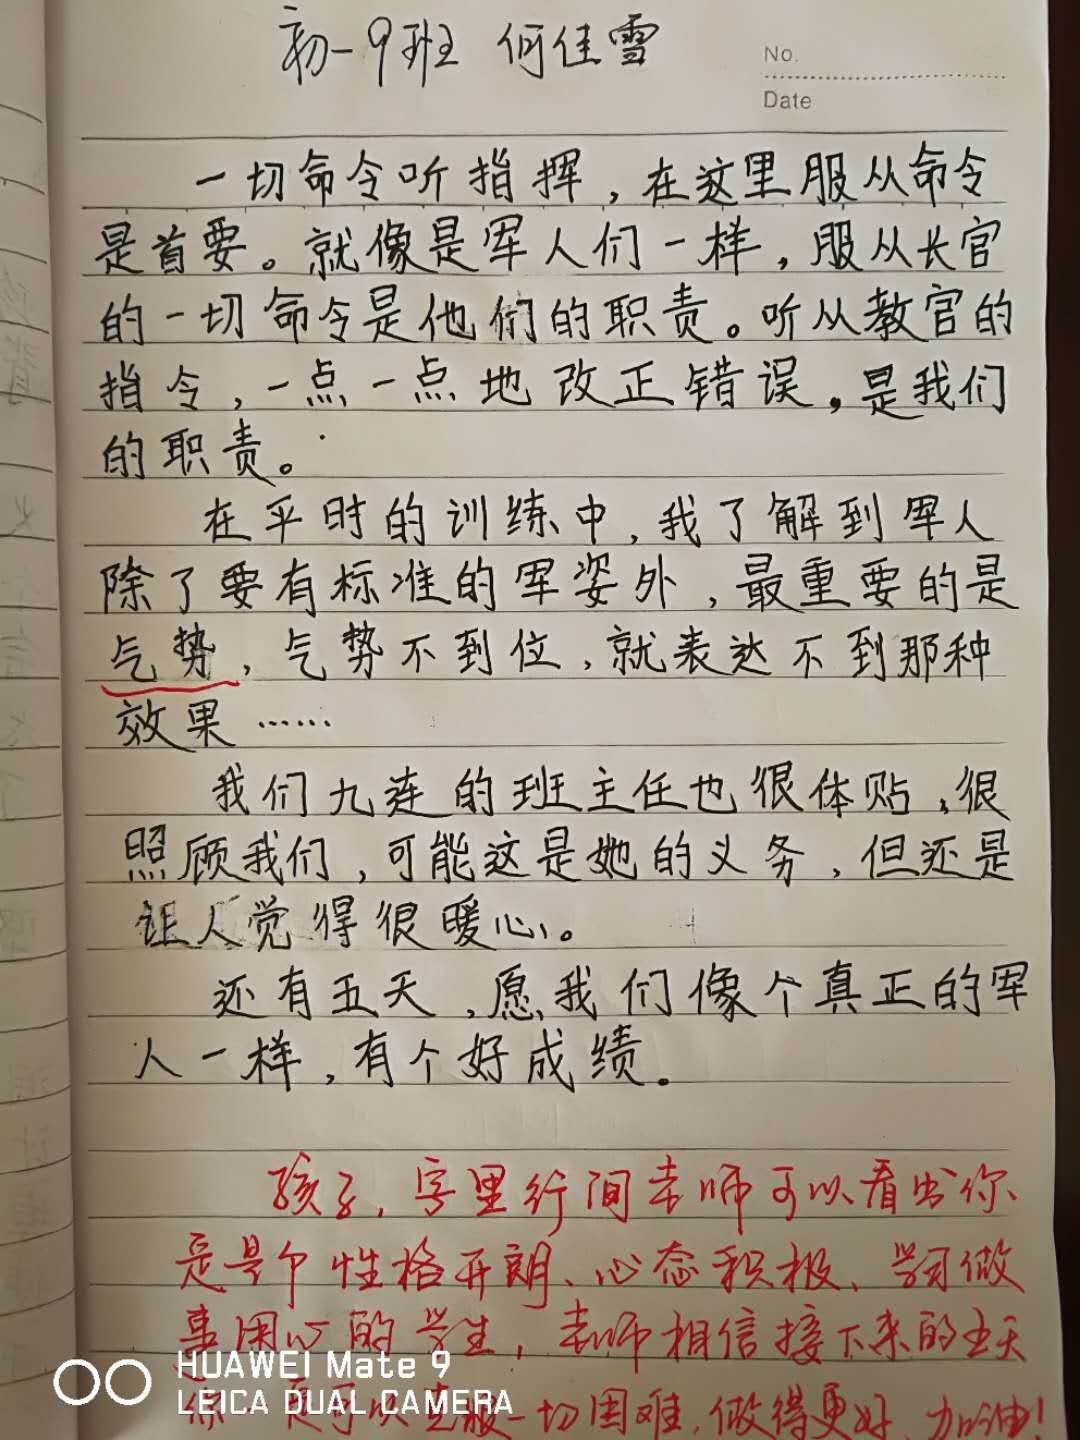 初一9班 何佳雪
No.
Date
一切命令听指挥，在这里服从命令
是首要。就像是军人们一样，服从长官
的一切命令是他们的职责。听从教官的
指令，一点一点地改正错误，是我们
的职责。
在平时的训练中，我了解到军人
除了要有标准的军姿外，最重要的是
气势，气势不到位，就表达不到那种
效果……
我们九连的班主任也很体贴，很
照顾我们，可能这是她的义务，但还是
让人觉得很暖心。
还有五天，愿我们像个真正的军
人一样，有个好成绩。
孩子，字里行间老师可以看出你
是个性格开朗、心态积极、学习做
事用心的学生，老师相信接下来的五天
你一定可以克服一切困难，做得更好，加油！
HUAWEI Mate 9
LEICA DUAL CAMERA